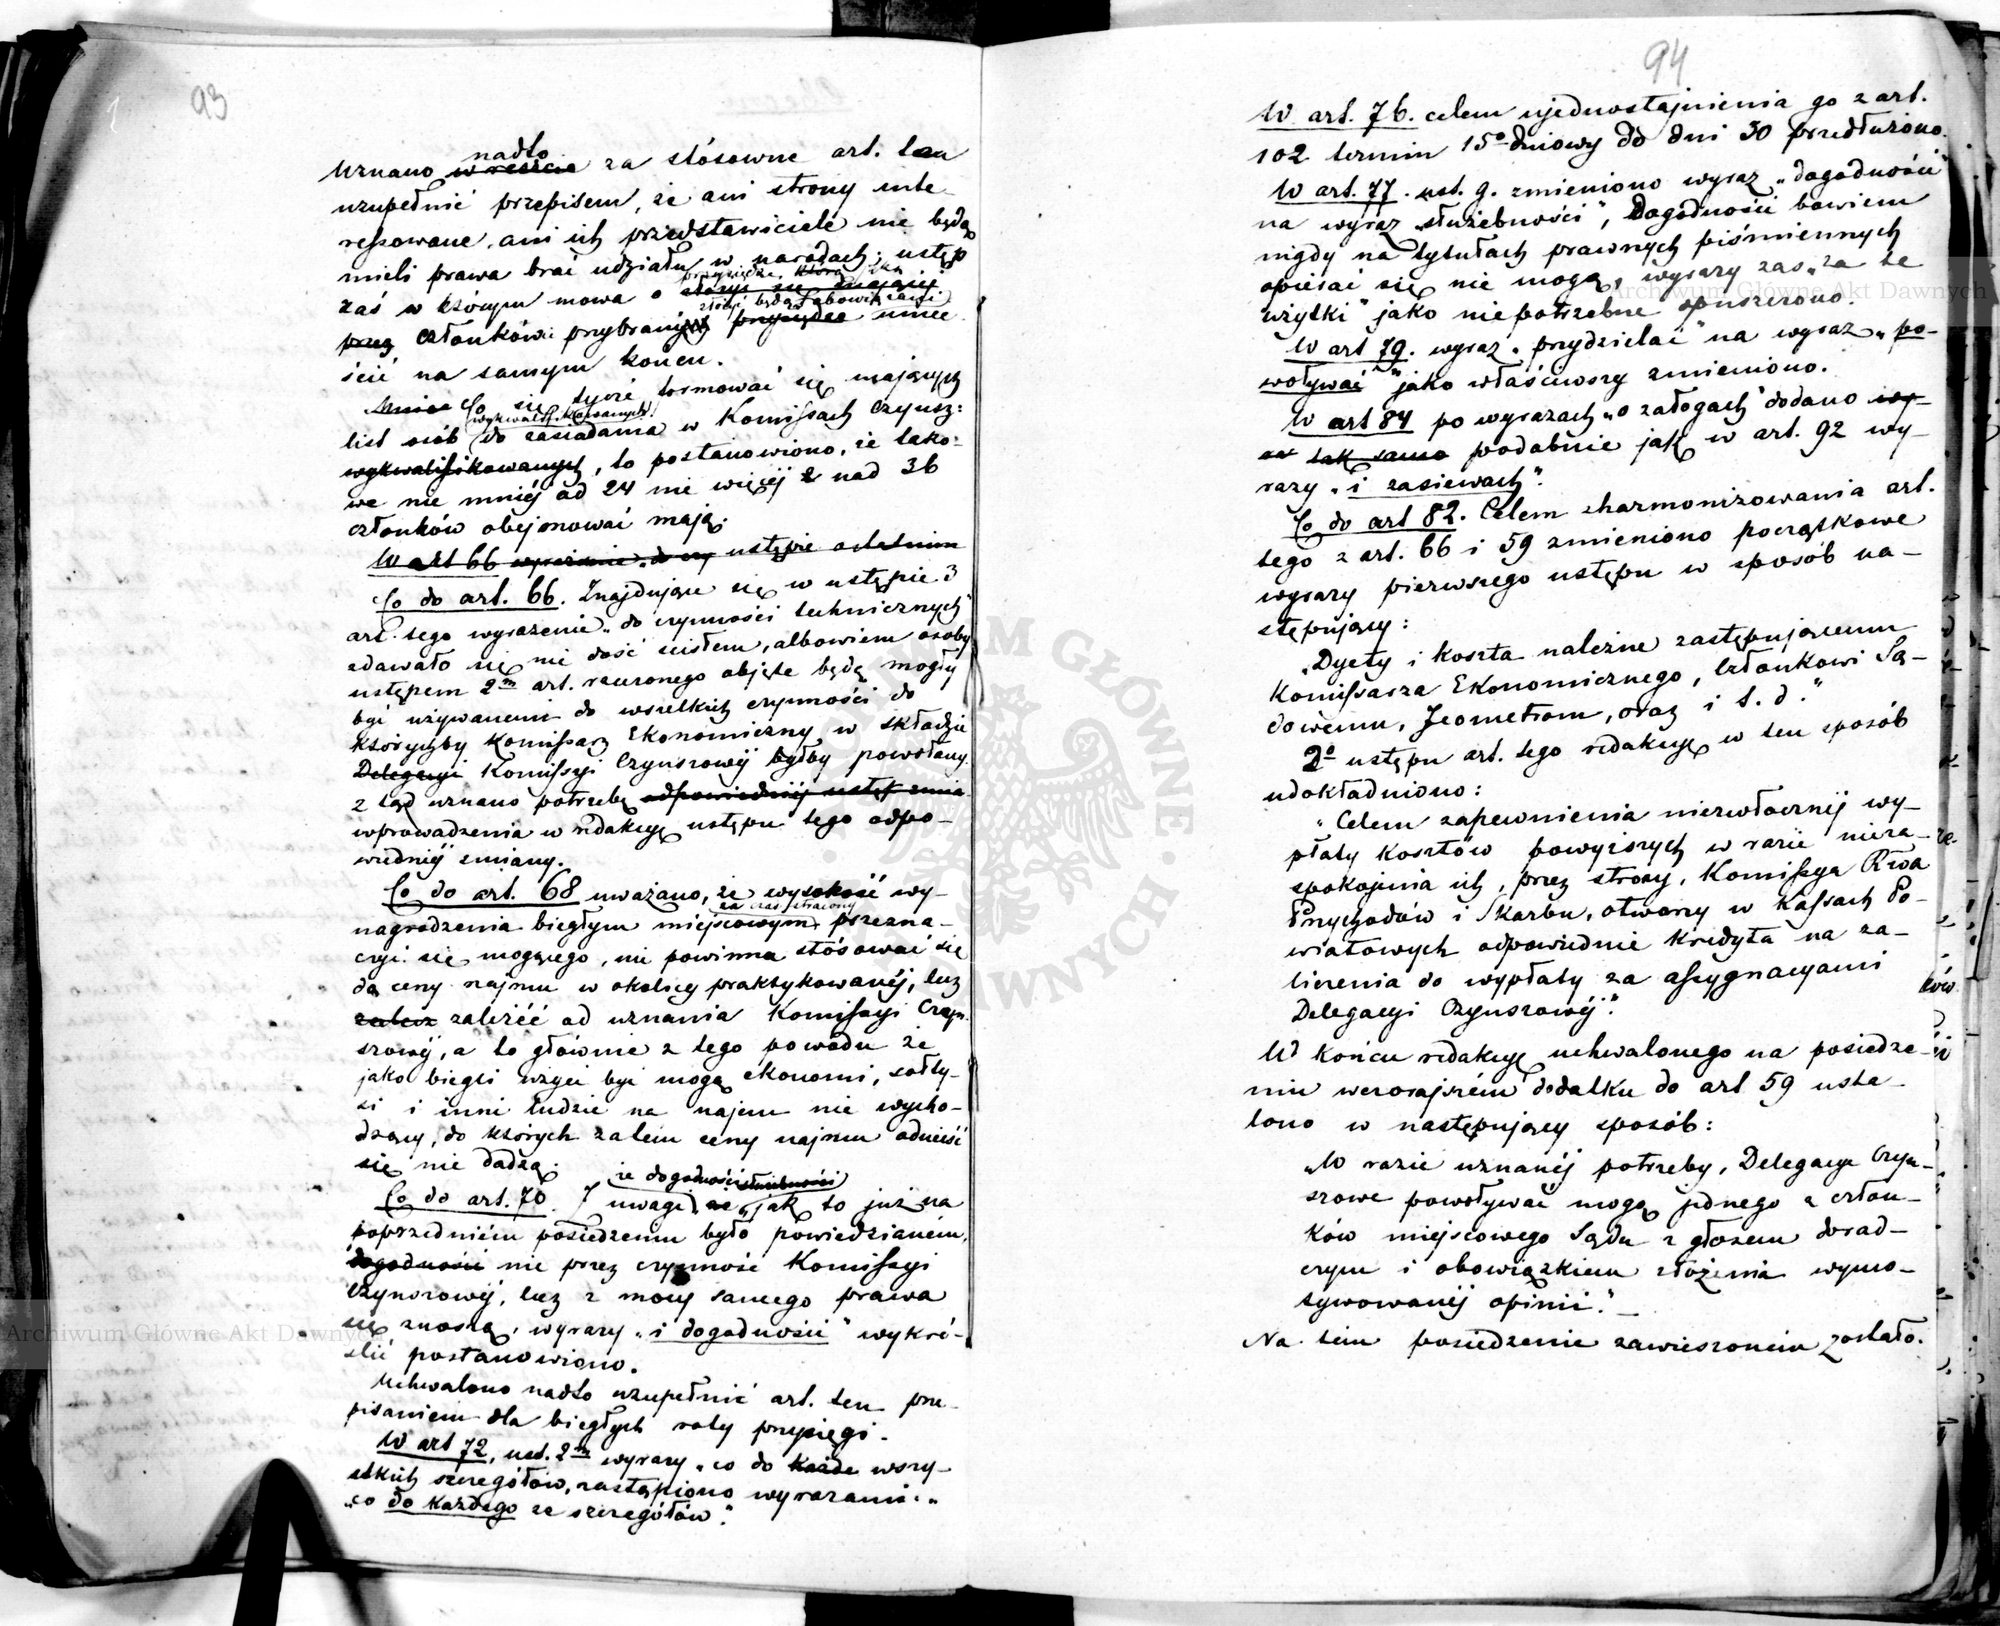 93
nadto
Uznano w reszcie za stósowne art. ten
uzupełnić przepisem, że ani strony inte-
ressowane, ani ich przedstawiciele nie będą
mieli prawa brać udziału w naradach; ustęp
przysiędze, którą
zaś w którym mowa o
złożyć będą obowiązani
przez Członków przybranych przysiędze umie
ścić na samym końcu.
Co się tycze formować się mających
wykwalifikowanych
list osób do zasiadania w Komissach Czynsz:
wykwalifikowanych, to postanowiono, że tako-
we nie mniéj od 24 nie więcéj nad 36
członków obejmować mają.
W art 66 wyrażenie do czy ustępie ostatnim
Co do art. 66. Znajdujące się w ustępie 3
art. tego wyrażenie „do czynności technicznych"
zdawało się nie dość ścisłem, albowiem osoby
ustępem 2m art. rzeczonego objęte będą mogły
być używanemi do wszelkich czynności do
którychby Komissarz Ekonomiczny w składzie
Delegacyi Komissyi Czynszowéj byłby powołany.
z tąd uznano potrzebę odpowiedniéj ustęp zmia
wprowadzenia w redakcyę ustępu tego odpo-
wiedniéj zmiany.
Co do art. 68 uważano, że wysokość wy-
za czas stracony
nagrodzenia biegłym miejscowym przezna-
czyć się mogącego, nie powinna stósować się
do ceny najmu w okolicy praktykowanéj, lecz
zależéć od uznania Komissyi Czyn-
szowéj, a to głównie z tego powodu że
jako biegli użyci być mogą ekonomi, sołty-
si i inni ludzie na najem nie wycho-
dzący, do których zatem ceny najmu odnieść
się nie dadzą.
że dogodności służebności
Co do art. 70. Z uwagi że jak to już na
poprzedniém posiedzeniu było powiedzianém,
dogodności nie przez czynność Komissyi
Czynszowéj, lecz z mocy samego prawa
się znoszą, wyrazy „i dogodności" wykré-
ślić postanowiono.
Uchwalono nadto uzupełnić art. ten prze-
pisaniem dla biegłych roty przysięgi.
W art 72, ust. 2m wyrazy „co do każde wszy-
stkich szczegółów, zastąpiono wyrazami: „
„co do każdego ze szczegółów".
94
W art. 76. celem ujednostajnienia go z art.
102 termin 15o dniowy do dni 30 przedłużono.
W art. 77. ust. g. zmieniono wyraz „dogodności"
na wyraz „służebności", Dogodności bowiem
nigdy na tytułach prawnych piśmiennych
opierać się nie mogą, wyrazy zaś „za te
użytki" jako niepotrzebne opuszczono.
W art 79. wyraz „przydzielać" na wyraz „po-
woływać" jako właściwszy zmieniono.
W art 84 po wyrazach „o załogach" dodano wy-
tak samo podobnie jak w art. 92 wy-
razy „i zasiewach".
Co do art 82. Celem zharmonizowania art.
tego z art. 66 i 59 zmieniono początkowe
wyrazy pierwszego ustępu w sposób na-
stępujący:
„Dyety i koszta należne zastępującemu
Komissarza Ekonomicznego, Członkowi Są-
dowemu, Jeometrom, oraz i t. d."
2o ustępu art. tego redakcyę w ten sposób
udokładniono:
„Celem zapewnienia niezwłocznéj wy-
płaty kosztów powyższych w razie nieza-
spokojenia ich, przez strony, Komissya Rwa
Przychodów i Skarbu, otworzy w Kassach Po-
wiatowych odpowiednie kredyta na za-
liczenia do wypłaty za assygnacyami
Delegacyi Czynszowéj".
W końcu redakcyę uchwalonego na posiedze-
niu wczorajszém dodatku do art 59 usta-
lono w następujący sposób:
„W razie uznanéj potrzeby, Delegacye Czyn-
szowe powoływać mogą jednego z człon-
ków miejscowego Sądu z głosem dorad-
czym i obowiązkiem złożenia wymo-
tywowanéj opinii".
Na tém posiedzenie zawieszoném zostało.
Archiwum Główne Akt Dawnych
Archiwum Główne Akt Dawnych